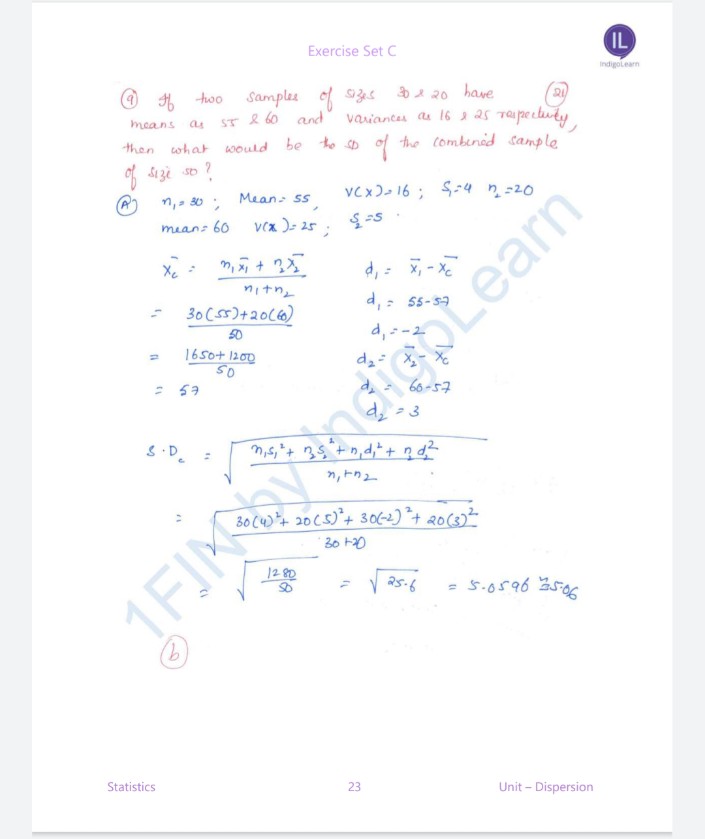 Exercise Set C
IL
IndigoLearn
(9) If two samples of sizes 30 & 20 have (21)
means as 55 & 60 and variances as 16 & 25 respectively,
then what would be the SD of the combined sample
of size 50?
(A) n₁ = 30 ; Mean = 55, V(X) = 16 ; S₁ = 4 n₂ = 20
mean = 60 V(x) = 25 ; S₂ = 5 .
x̄c = (n₁x̄₁ + n₂x̄₂)/(n₁+n₂)
= (30(55)+20(60))/50
= (1650+1200)/50
= 57
d₁ = x̄₁ - x̄c
d₁ = 55-57
d₁ = -2
d₂ = x̄₂ - x̄c
d₂ = 60-57
d₂ = 3
S.Dc = √((n₁s₁² + n₂s₂² + n₁d₁² + n₂d₂²)/(n₁+n₂))
= √((30(4)² + 20(5)² + 30(-2)² + 20(3)²)/(30+20))
= √(1280/50) = √25.6 = 5.0596 ≅ 5.06
(b)
1FIN by IndigoLearn
Statistics 23 Unit – Dispersion